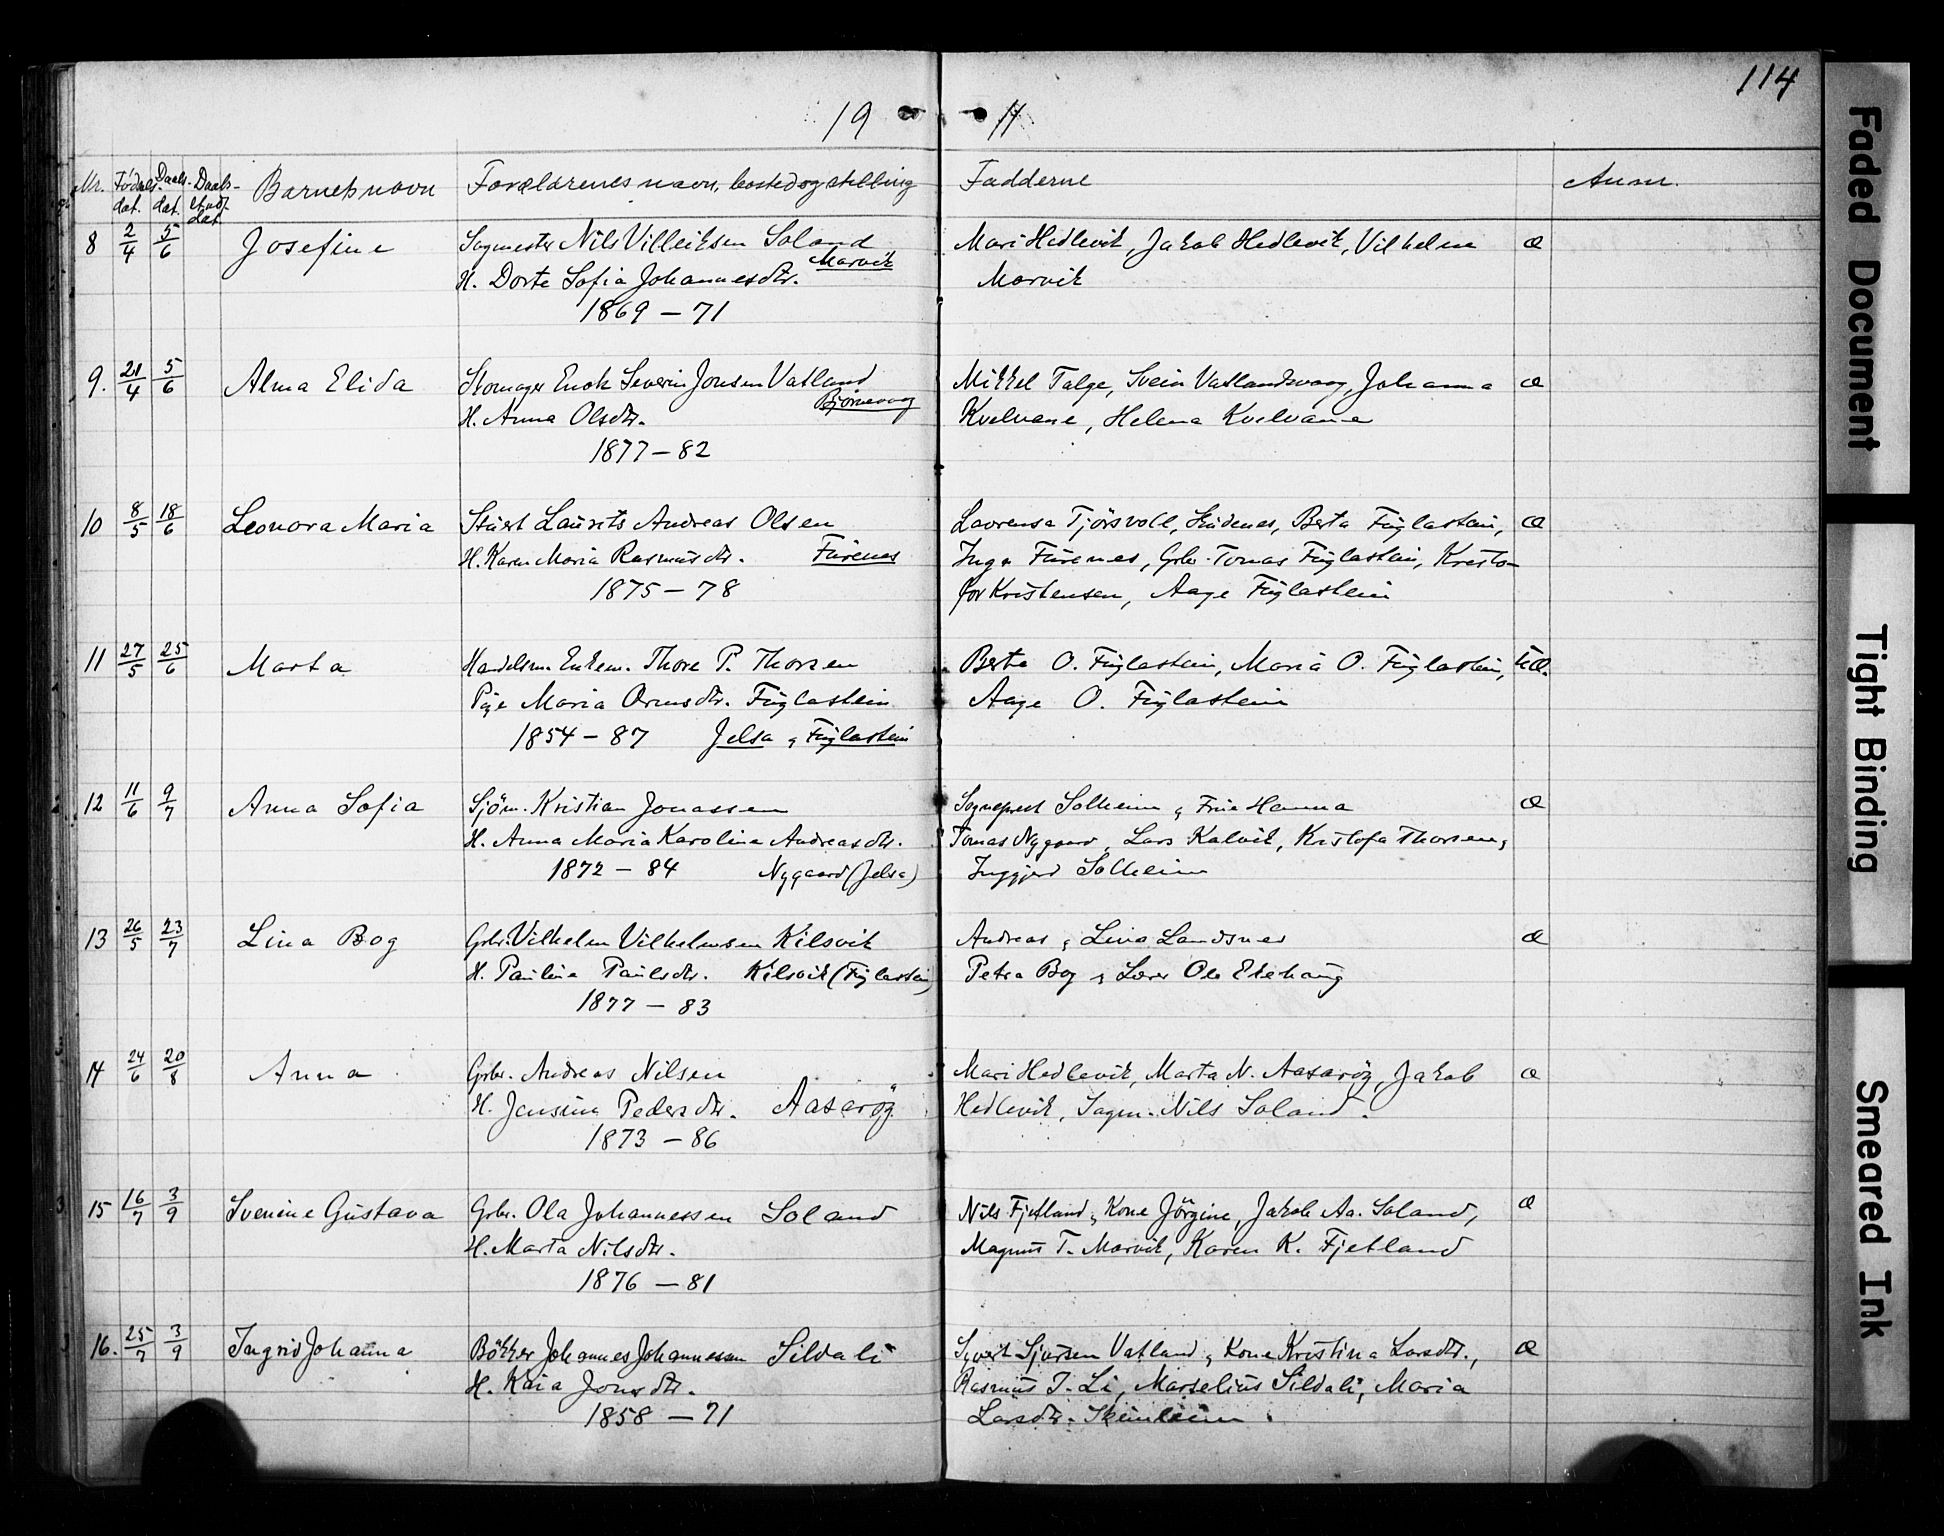 114
19 11
Nr. Fødsels dat. Daabs dat. Daabs dat. Barnets navn Forældrenes navn, bosted og stilling Fadderne Anm.
8 2/4 5/6 Josefine Sagmester Nils Villeiksen Soland Mari Hedlevik, Jakob Hedlevik, Vilhelm Æ
Marvik
H. Dorte Sofia Johannesdtr. Marvik
1869 – 71
9. 21/4 5/6 Alma Elida Skomager Enok Severin Jonsen Vatland Mikkel Talge, Svein Vatlandsvaag, Johanna Æ
Bjørnevaag
H. Anna Olsdtr. Kvelvane, Helena Kvelvane
1877 – 82
10 8/5 18/6 Leonora Maria Stuert Laurits Andreas Olsen Lavrensa Tjörsvoll, Skudenes, Berta Fuglastein, Æ
H. Karen Maria Rasmusdtr. Furenes Inga Furenes, Grbr. Tomas Fuglastein, Kristo-
1875 – 78 for Kristensen, Aage Fuglastein
11 27/5 25/6 Marta Handelsm. Enkem. Thore P. Thorsen Berta O. Fuglastein, Maria O. Fuglastein, UÆ.
Pige Maria Ormsdtr. Fuglastein Aage O. Fuglastein
1854 – 87 Jelsa & Fuglastein
12 11/6 9/7 Anna Sofia Sjöm. Kristian Jonassen Sogneprest Solheim & Frue Hanna Æ
H. Anna Maria Karolina Andreasdtr. Tomas Nygaard, Lars Kalvik, Kristofa Thorsen,
1872 – 84 Nygaard (Jelsa) Inggjerd Solheim
13 26/5 23/7 Lina Bog Grbr. Vilhelm Vilhelmsen Kilsvik Andreas & Lina Landsnes Æ
H. Pauline Paulsdtr. Kilsvik (Fuglastein) Petra Bog & Lærer Ole Ekehaug
1877 – 83
14 24/6 20/8 Anna Grbr. Andreas Nilsen Mari Hedlevik, Marta N. Aasaröy, Jakob Æ
H. Jensine Pedersdtr. Aasaröy Hedlevik, Sagm. Nils Soland.
1873 – 86
15 16/7 3/9 Svenine Gustava Grbr. Ola Johannessen Soland Nils Fjetland & Kone Jörgine, Jakob Aa. Soland, Æ
H. Marta Nilsdtr. Magnus T. Marvik, Karen K. Fjetland
1876 – 81
16. 25/7 3/9 Ingrid Johanna Bökker Johannes Johannessen Sildali Syvert Sjursen Vatland & Kone Kristina Larsdtr., Æ
H. Kaia Jonsdtr. Rasmus T. Li, Marselius Sildali, Maria
1858 – 71 Larsdtr.
Faded Document
Tight Binding
Smeared Ink